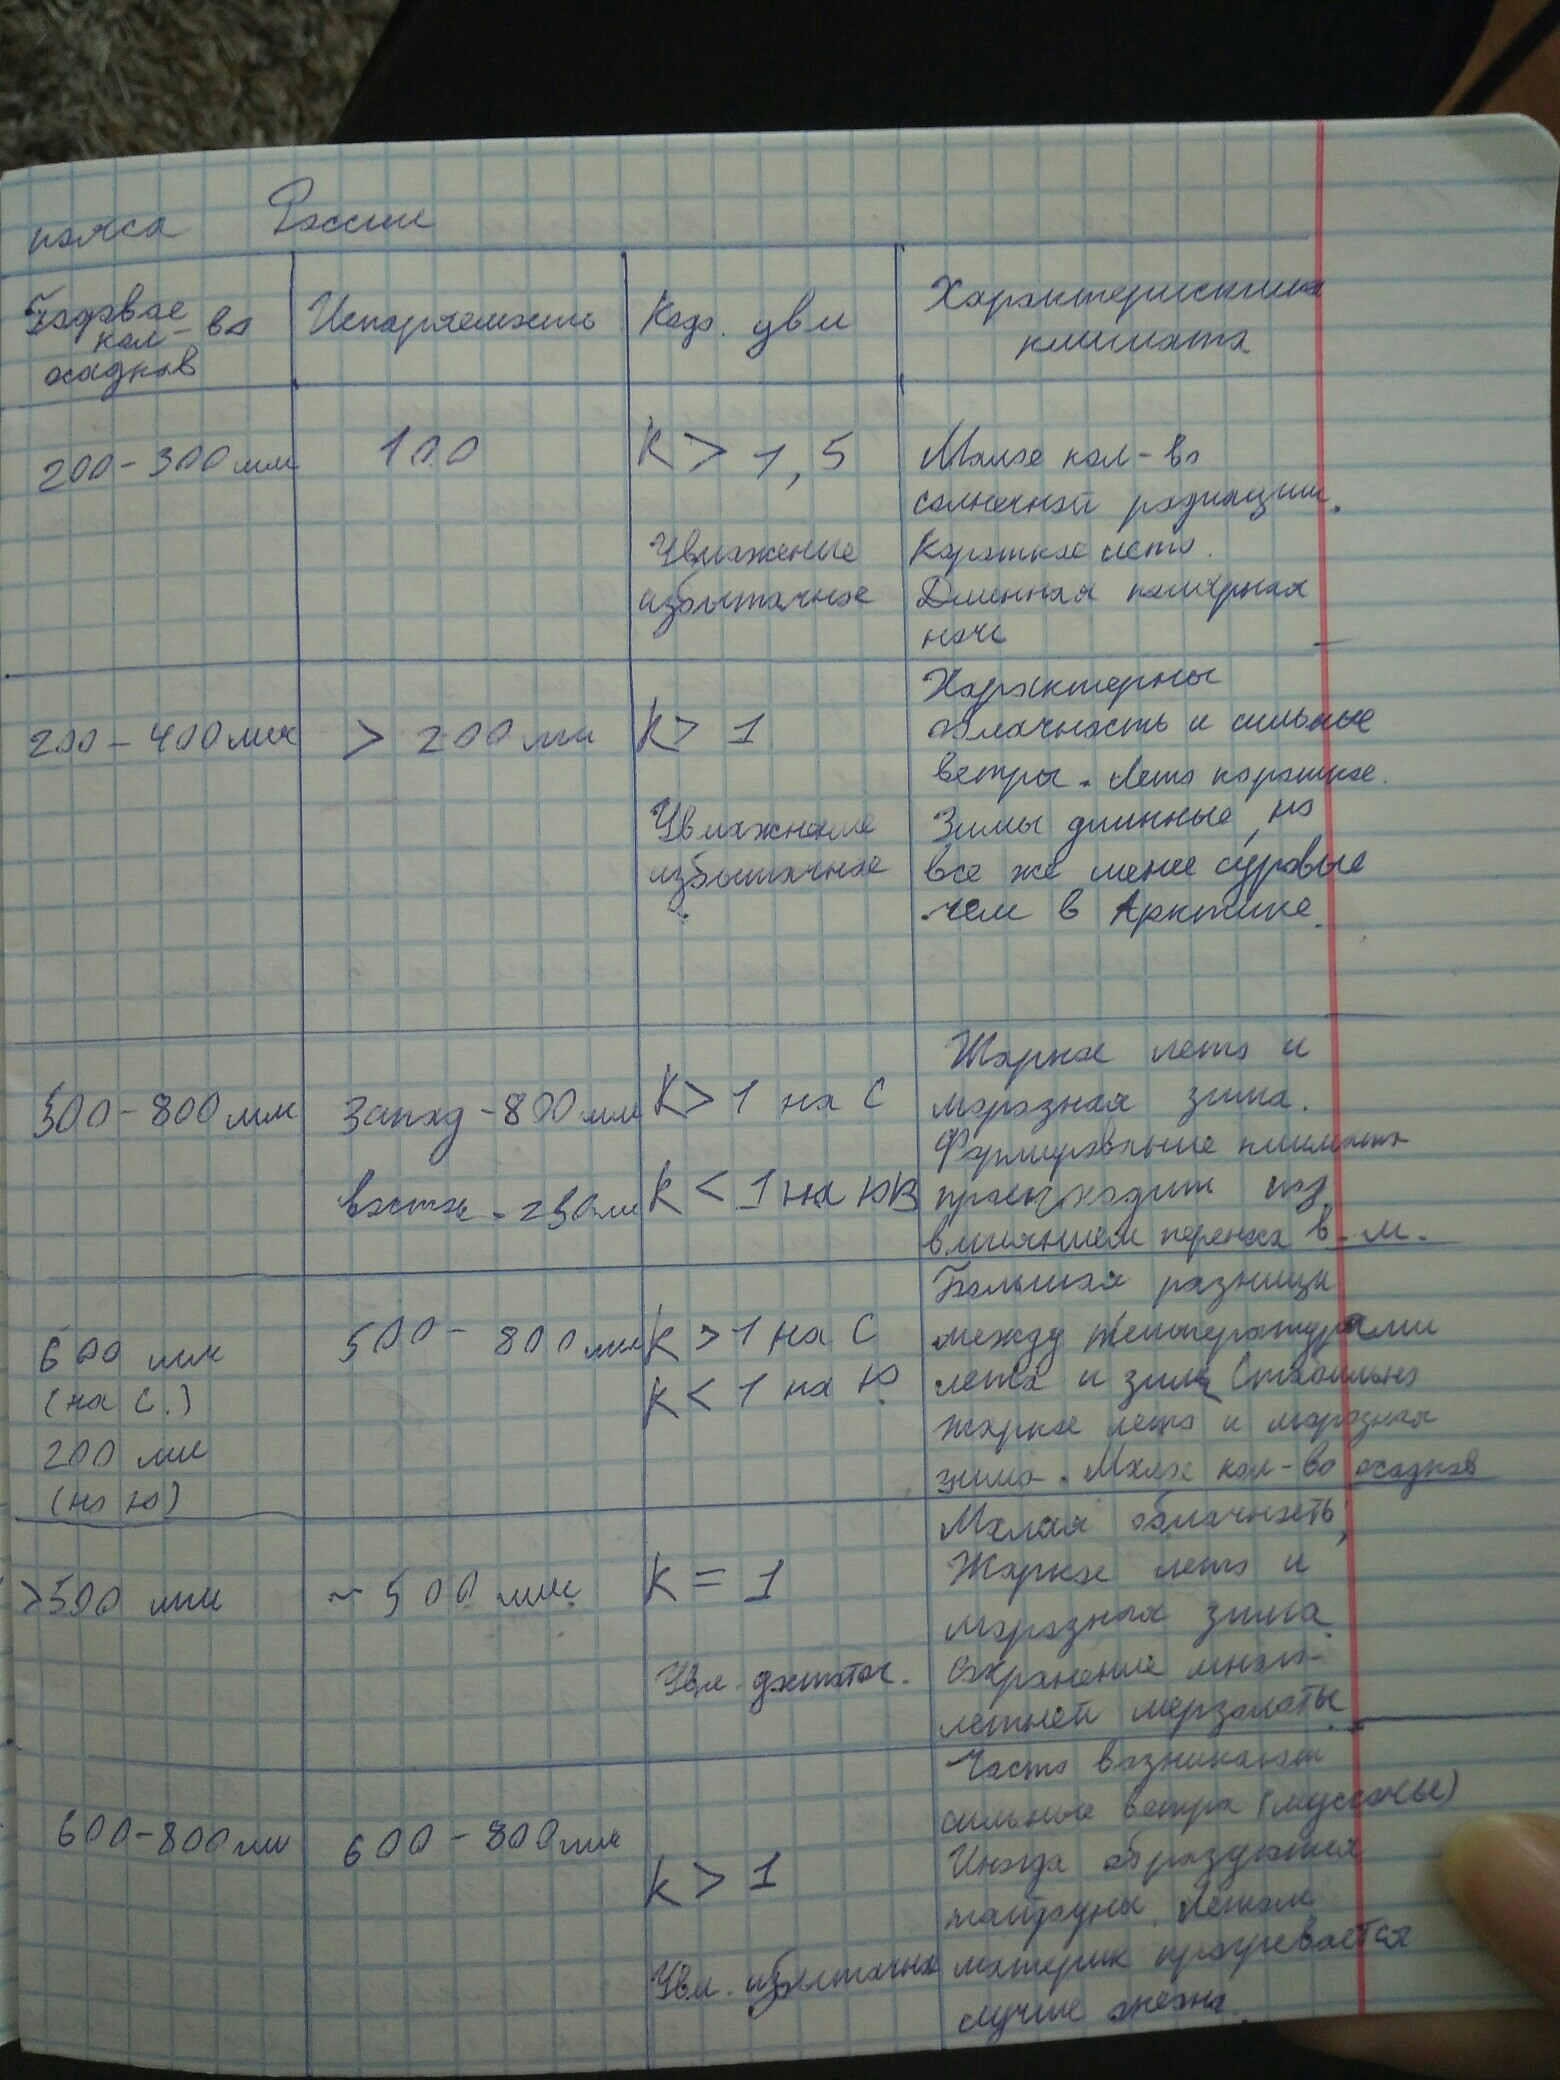 пояса России
Годовое кол-во осадков
Испаряемость
Коэф. увл
Характеристика
климата
200-300 мм
100
K > 1,5
Увлажение
избыточное
Малое кол-во
солнечной радиации.
Короткое лето.
Длинная полярная
ночь
200-400 мм
> 200 мм
K > 1
Увлажнение
избыточное
Характерны
облачность и сильные
ветры. Лето короткое.
Зимы длинные, но
все же менее суровые
чем в Арктике.
500-800 мм
Запад - 800 мм
восток -
K > 1 на С
K < 1 на ЮВ
Жаркое лето и
морозная зима.
Формирование климата
происходит под
влиянием в. м.
600 мм
(на С.)
200 мм
(на Ю)
500 - 800 мм
K > 1 на С
K < 1 на Ю
Большая разница
между температурами
лета и зимы Стабильно
жаркое лето и морозная
зима. Малое кол-во осадков
>500 мм
~ 500 мм
K = 1
Увл. достаточ.
Малая облачность,
Жаркое лето и
морозная зима
Сохранение много-
летней мерзлоты
600-800 мм
600 - 800 мм
K > 1
Увл. избыточное
Часто возникают
сильные ветра (муссоны)
Иногда образуются
тайфуны. Летом
материк прогревается
лучше океана.